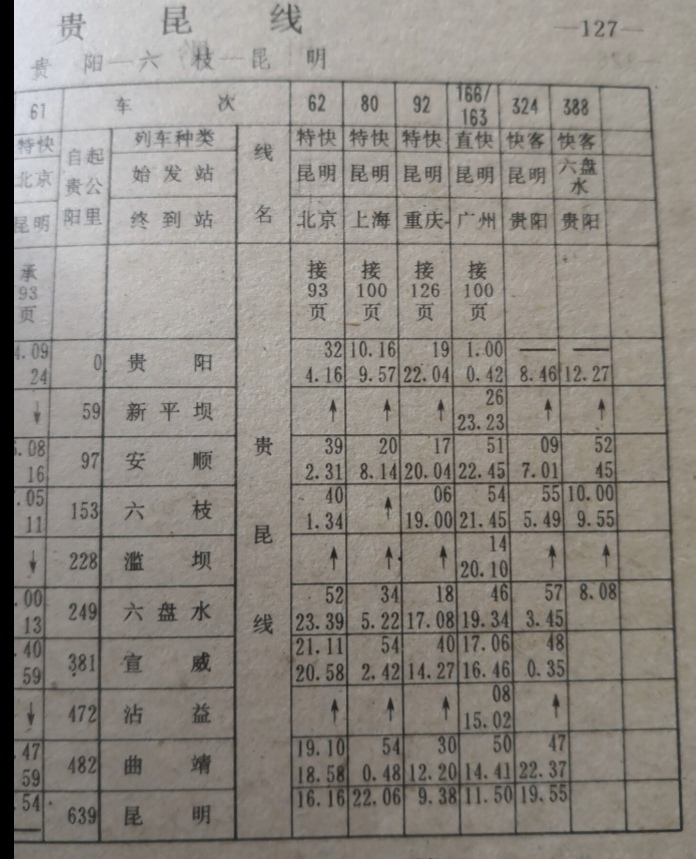 贵 昆 线 —127—
贵 阳—六 枝—昆 明
61 车 次 62 80 92 166/163 324 388
特快 自贵阳 起公里 列车种类 线名 特快 特快 特快 直快 快客 快客
北京 始 发 站 昆明 昆明 昆明 昆明 昆明 六盘水
昆明 终 到 站 北京 上海 重庆 广州 贵阳 贵阳
承93页 接93页 接100页 接126页 接100页
.09 32 10.16 19 1.00 — —
24 0 贵 阳 4.16 9.57 22.04 0.42 8.46 12.27
↓ 59 新 平 坝 ↑ ↑ ↑ 26 ↑ ↑
23.23
.08 贵昆线 39 20 17 51 09 52
16 97 安 顺 2.31 8.14 20.04 22.45 7.01 45
.05 40 ↑ 06 54 55 10.00
11 153 六 枝 1.34 19.00 21.45 5.49 9.55
↓ 228 滥 坝 ↑ ↑ ↑ 14 ↑ ↑
20.10
.00 52 34 18 46 57 8.08
13 249 六 盘 水 23.39 5.22 17.08 19.34 3.45
.40 21.11 54 40 17.06 48
59 381 宣 威 20.58 2.42 14.27 16.46 0.35
↓ 472 沾 益 ↑ ↑ ↑ 08 ↑
15.02
.47 19.10 54 30 50 47
59 482 曲 靖 18.58 0.48 12.20 14.41 22.37
.54 16.16 22.06 9.38 11.50 19.55
— 639 昆 明